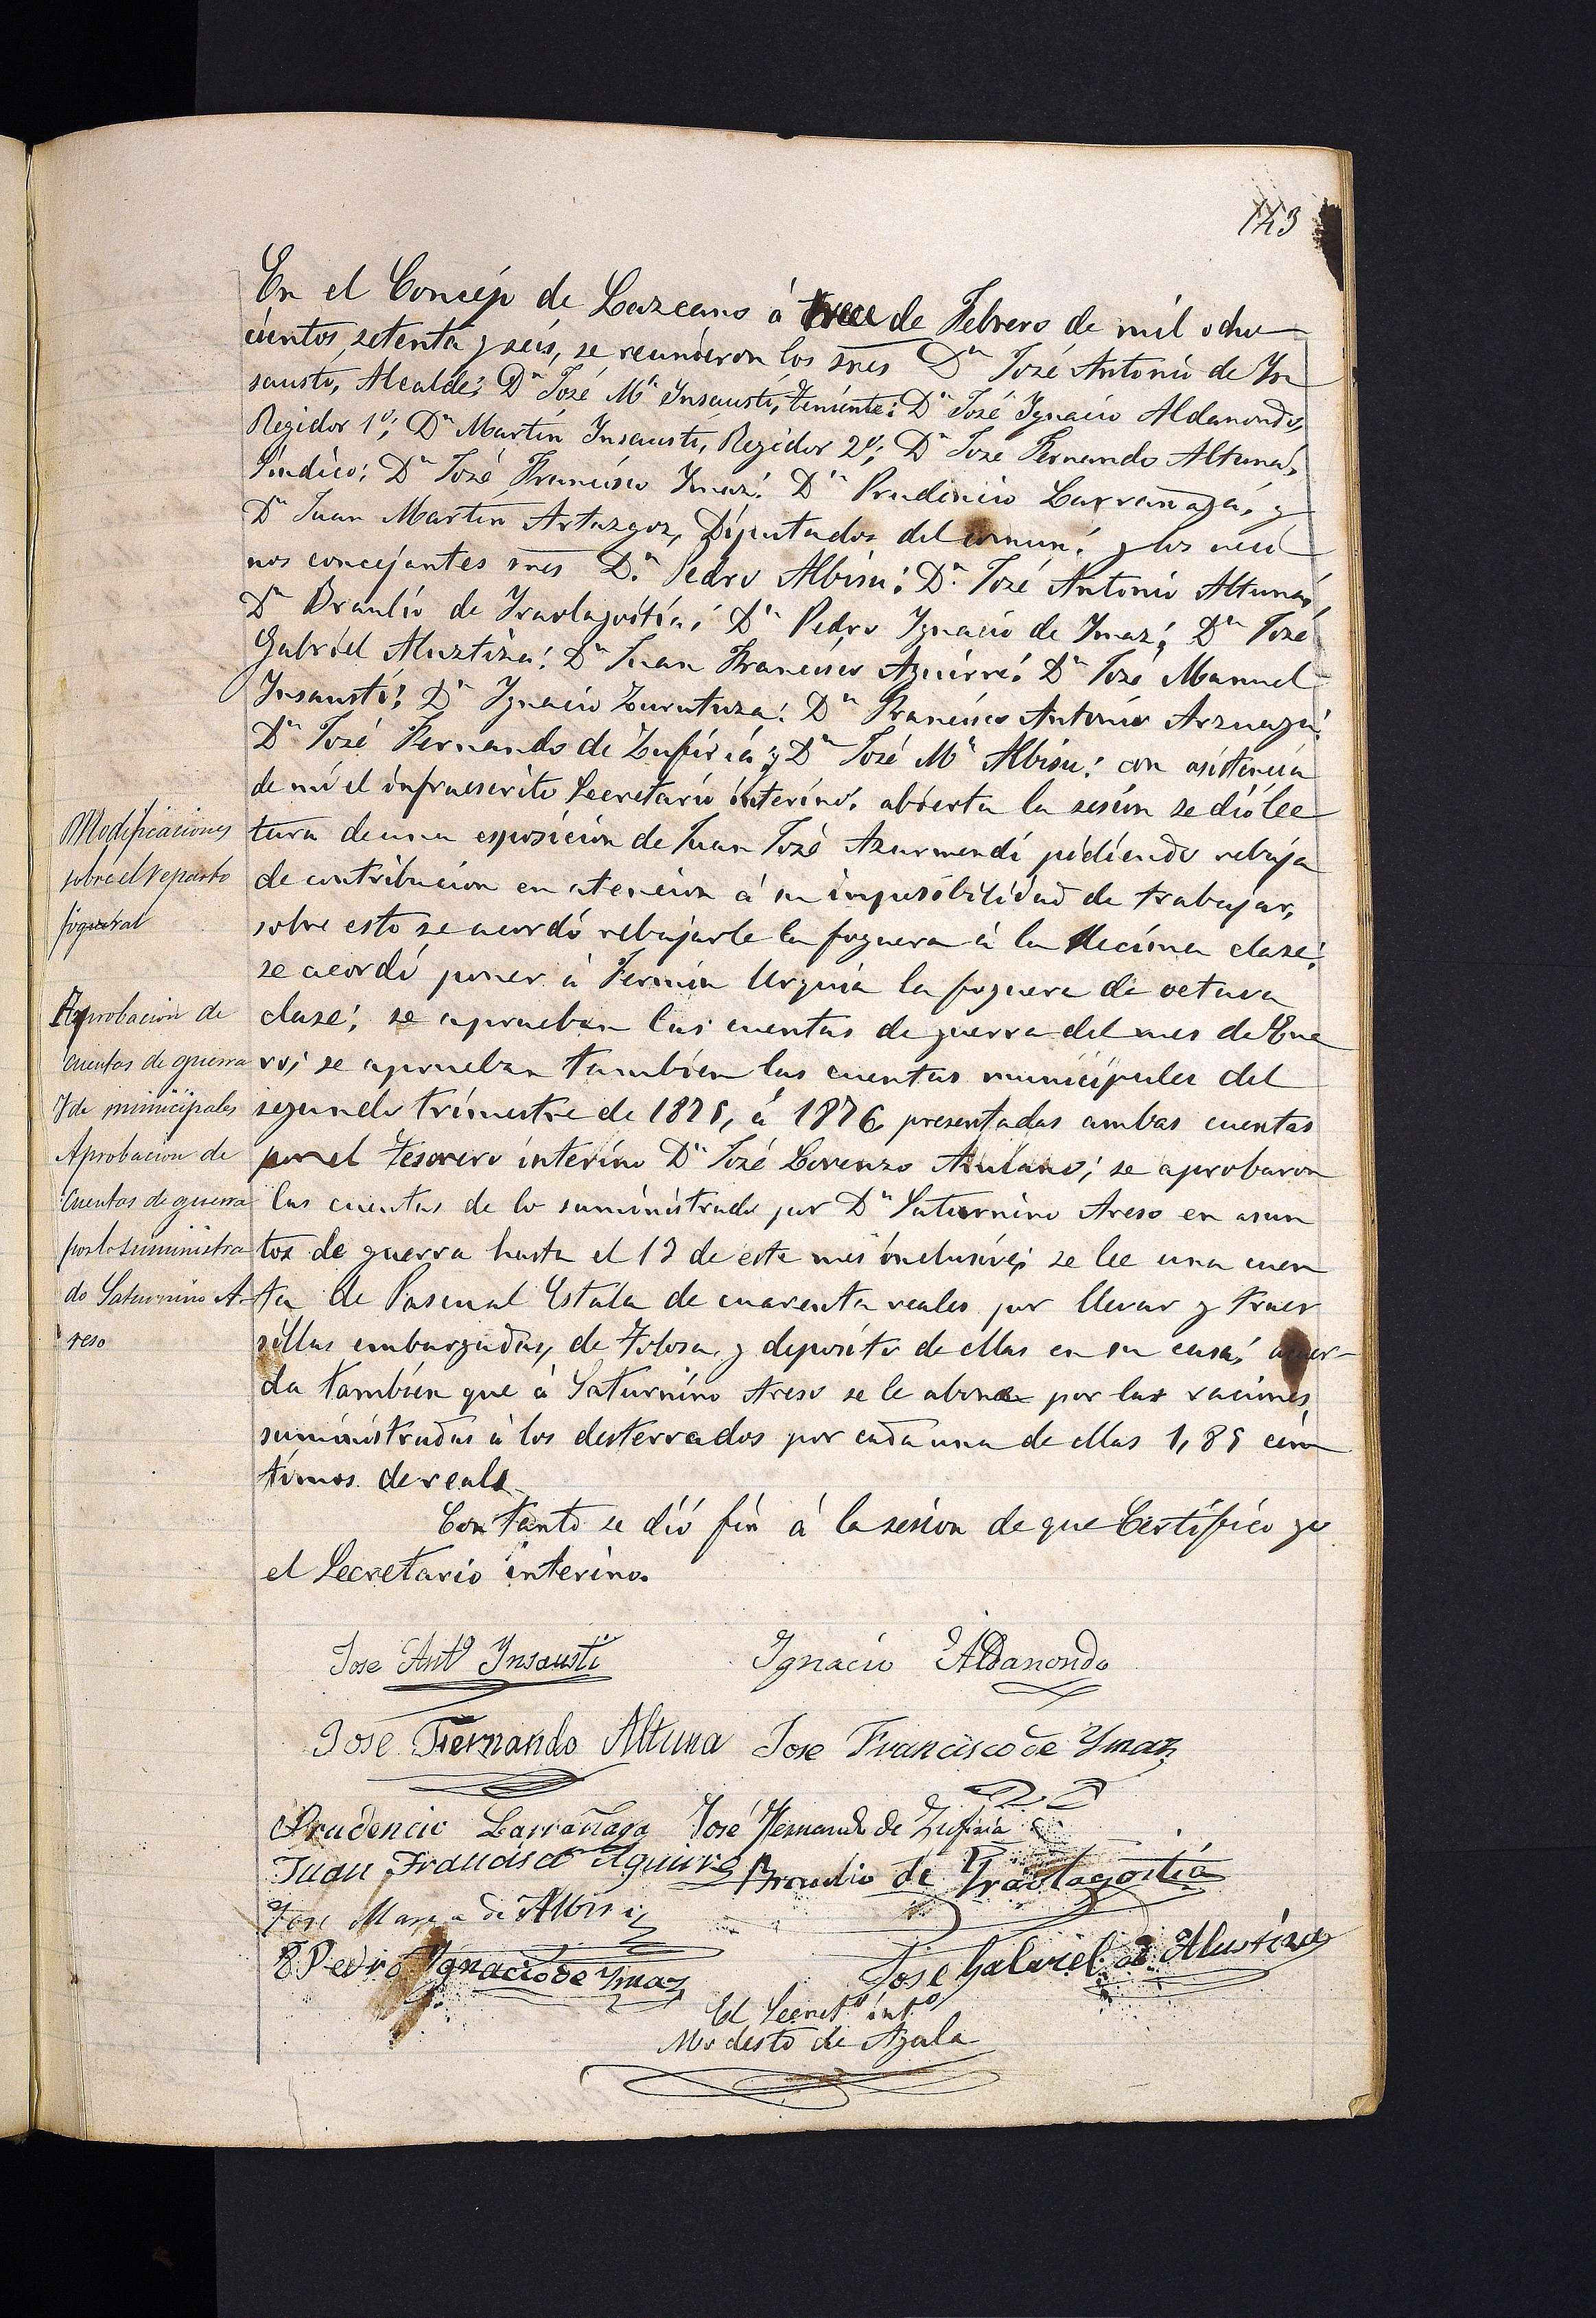 143
En el Concejo de Lazcano á trece de Febrero de mil ocho
cientos setenta y seis, se reunieron los sres Dn José Antonio de Yn
sausti, Alcalde; Dn José Ma Insausti, teniente; Dn José Ygnacio Aldanondo,
Regidor 1º; Dn Martín Insausti, Regidor 2º; Dn José Fernando Altuna,
Síndico; Dn José Francisco Ymaz; Dn Prudencio Larrañaga, y
Dn Juan Martín Artazgoz, Diputados del comun; y los veci
nos concejantes sres Dn Pedro Albisu; Dn José Antonio Altuna;
Dn Braulio de Yraolagoitia; Dn Pedro Ygnacio de Ymaz; Dn José
Gabriel Aluztiza; Dn Juan Francisco Aguirre; Dn José Manuel
Insausti; Dn Ygnacio Zurutuza; Dn Francisco Antonio Arzuaga;
Dn José Fernando de Zufiria; y Dn José Ma Albisu; con asistencia
de mi el infraescrito Secretario interino. abierta la sesion se dió lec
tura de una esposicion de Juan José Azurmendi pidiendo rebaja
de contribucion en atencion á su imposibilidad de trabajar,
sobre esto se acordó rebajarle la foguera á la décima clase;
se acordó poner á Fermin Urquia la foguera de octava
clase; se aprueban las cuentas de guerra del mes de Ene
ro; se aprueban tambien las cuentas municipales del
segundo trimestre de 1875, á 1876 presentadas ambas cuentas
por el tesorero interino Dn José Lorenzo; se aprobaron
las cuentas de lo suministrado por Dn Saturnino Areso en asun
tos de guerra hasta el 12 de este mes inclusive; se lee una cuen
ta de Pascual Estala de cuarenta reales por llevar y traer
sillas embargadas, de Tolosa, y deposito de ellas en su casa; acuer-
da tambien que á Saturnino Areso se le abone por las raciones
suministradas á los desterrados por cada una de ellas 1,85 cén
timos de reals
Con tanto se dió fin á la sesion de que Certifico yo
el Secretario interino.
Modificaciones
sobre el reparto
fogueral
Aprobacion de
cuentas de guerra
y de municipales
Aprobacion de
cuentas de guerra
por lo suministra
do Saturnino A-
reso
Jose Anto Ynsausti
Ignacio Aldanondo
Jose Fernando Altuna
Jose Francisco de Ymaz
Prudencio Larrañaga
José Fernando de Zufiria
Juan Francisco Aguirre
Braulio de Yraolagoitia
Jose Maria de Albisu
Pedro Ygnacio de Ymaz
Jose Gabriel de Alustiza
El Secreto into
Modesto de Ayala